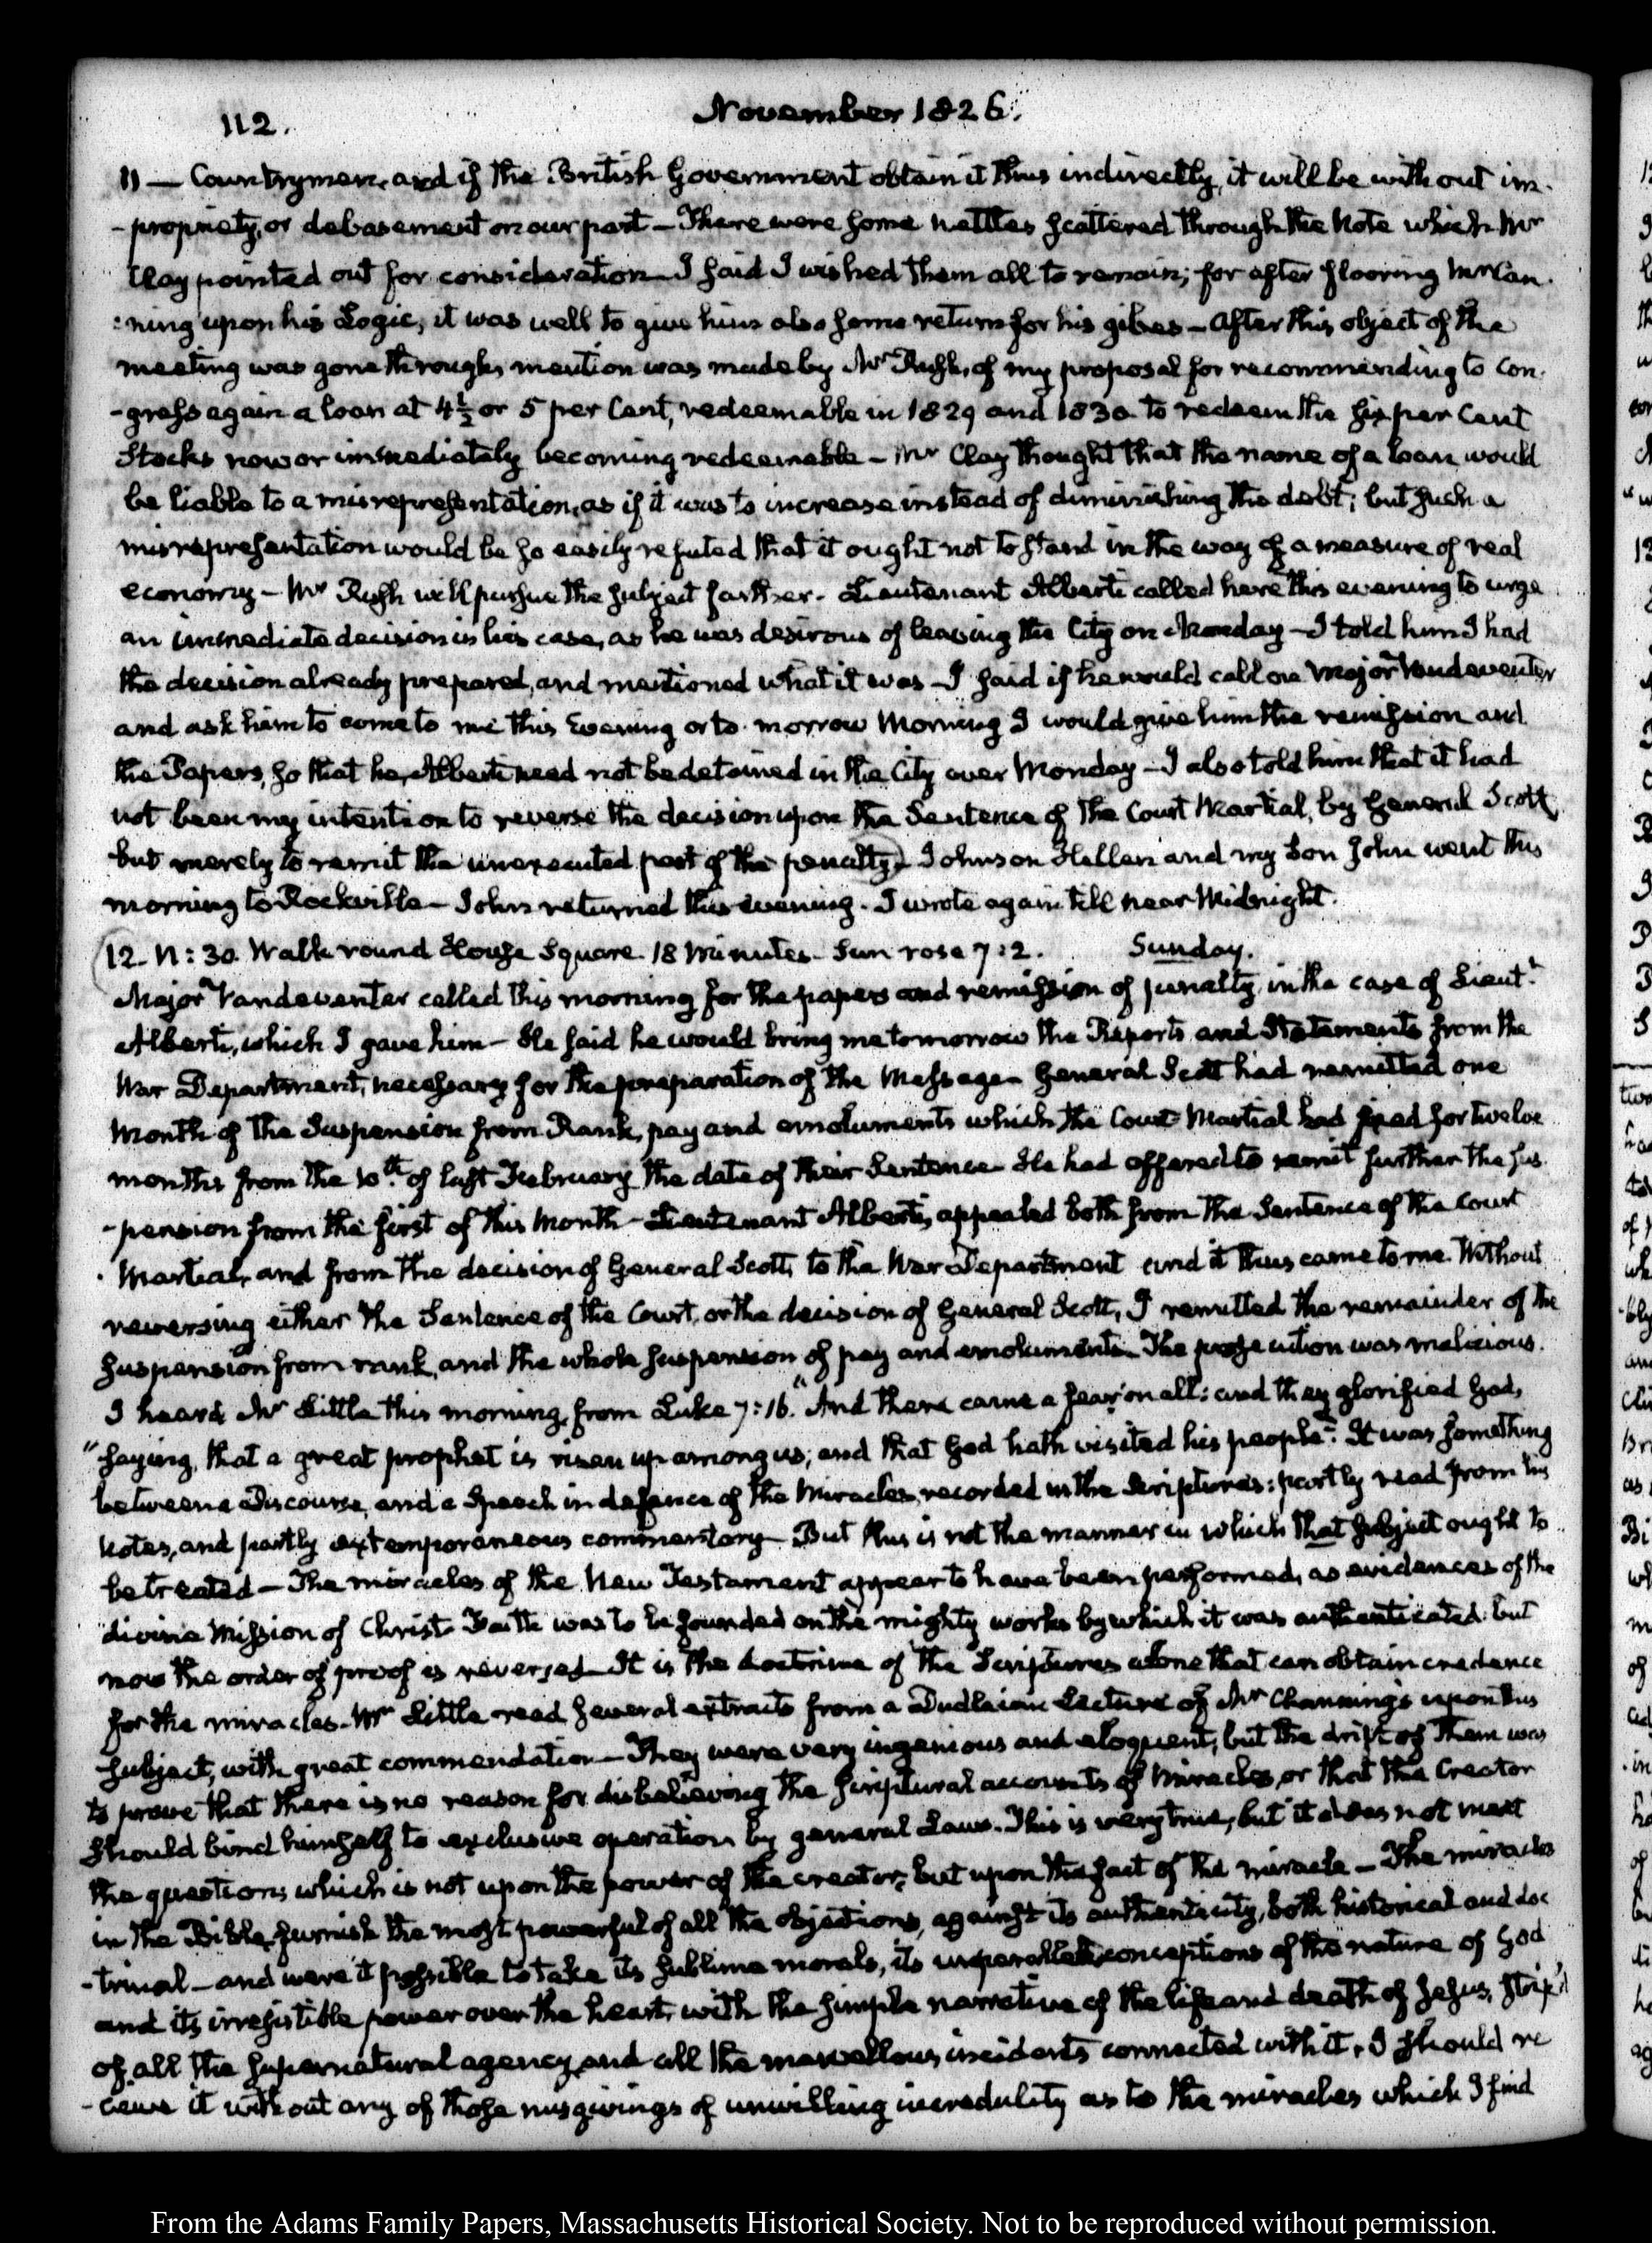 112.
November 1826.
11 — Countrymen, and if the British Government obtain it thus indirectly, it will be without im-
-propriety, or debasement on our part — There were some nettles scattered through the Note which Mr
Clay pointed out for consideration — I said I wished them all to remain; for after flooring Mr Can-
:ning upon his Logic, it was well to give him also some return for his gibes — After this object of the
meeting was gone through, mention was made by Mr Rush, of my proposal for recommending to Con-
-gress again a loan at 4½ or 5 per Cent, redeemable in 1829 and 1830 to redeem the six per Cent
Stocks now or immediately becoming redeemable — Mr Clay thought that the name of a loan would
be liable to a misrepresentation, as if it was to increase instead of diminishing the debt; but such a
misrepresentation would be so easily refuted that it ought not to stand in the way of a measure of real
economy — Mr Rush will pursue the subject further. Lieutenant Alberti called here this evening to urge
an immediate decision in his case, as he was desirous of leaving the City on Monday — I told him I had
the decision already prepared, and mentioned what it was — I said if he would call on Major Vandeventer
and ask him to come to me this Evening or to-morrow Morning I would give him the remission and
the Papers, so that he, Alberti need not be detained in the City over Monday — I also told him that it had
not been my intention to reverse the decision upon the Sentence of the Court Martial, by General Scott,
but merely to remit the unexecuted part of the penalty. Johnson Hellen and my Son John went this
morning to Rockville — John returned this evening. I wrote again till near Midnight.
12. IV: 30. Walk round House Square 18 Minutes. Sun rose 7:2. Sunday.
Major Vandeventer called this morning for the papers and remission of penalty, in the case of Lieutt
Alberti, which I gave him — He said he would bring me tomorrow the Reports and Statements from the
War Department, necessary for the preparation of the Message — General Scott had remitted one
Month of the Suspension from Rank, pay and emoluments which the Court Martial had fixed for twelve
months from the 10th of last February the date of their Sentence — He had offered to remit further the sus-
-pension from the first of this Month — Lieutenant Alberti, appealed both from the Sentence of the Court
Martial, and from the decision of General Scott, to the War Department and it thus came to me. Without
reversing either the Sentence of the Court, or the decision of General Scott, I remitted the remainder of the
suspension from rank, and the whole suspension of pay and emoluments. The prosecution was malicious.
I heard Mr Little this morning, from Luke 7:16. "And there came a fear on all: and they glorified God,
"saying, that a great prophet is risen up among us; and that God hath visited his people". It was something
between a Discourse, and a Speech in defence of the Miracles, recorded in the Scriptures: partly read from his
Notes, and partly extemporaneous commentary — But this is not the manner in which that subject ought to
be treated — The miracles of the New Testament appear to have been performed, as evidences of the
divine Mission of Christ. Faith was to be founded on the mighty works by which it was authenticated: but
now the order of proof is reversed — It is the doctrine of the Scriptures alone that can obtain credence
for the miracles. Mr Little read several extracts from a Dudleian Lecture of Mr Channing's upon this
subject, with great commendation — They were very ingenious and eloquent, but the drift of them was
to prove that there is no reason for disbelieving the scriptural accounts of Miracles, or that the Creator
should bind himself to exclusive operation by general Laws. This is very true, but it does not meet
the question, which is not upon the power of the creator, but upon the fact of the miracle — The miracles
in the Bible furnish the most powerful of all the objections, against its authenticity, both historical and doc
-trinal — and were it possible to take its sublime morals, its unparalleled conceptions of the nature of God
and its irresistible power over the heart, with the simple narrative of the life and death of Jesus, strip'd
of all the supernatural agency and all the marvellous incidents connected with it, I should re
-ceive it without any of those misgivings of unwilling incredulity as to the miracles which I find
From the Adams Family Papers, Massachusetts Historical Society. Not to be reproduced without permission.